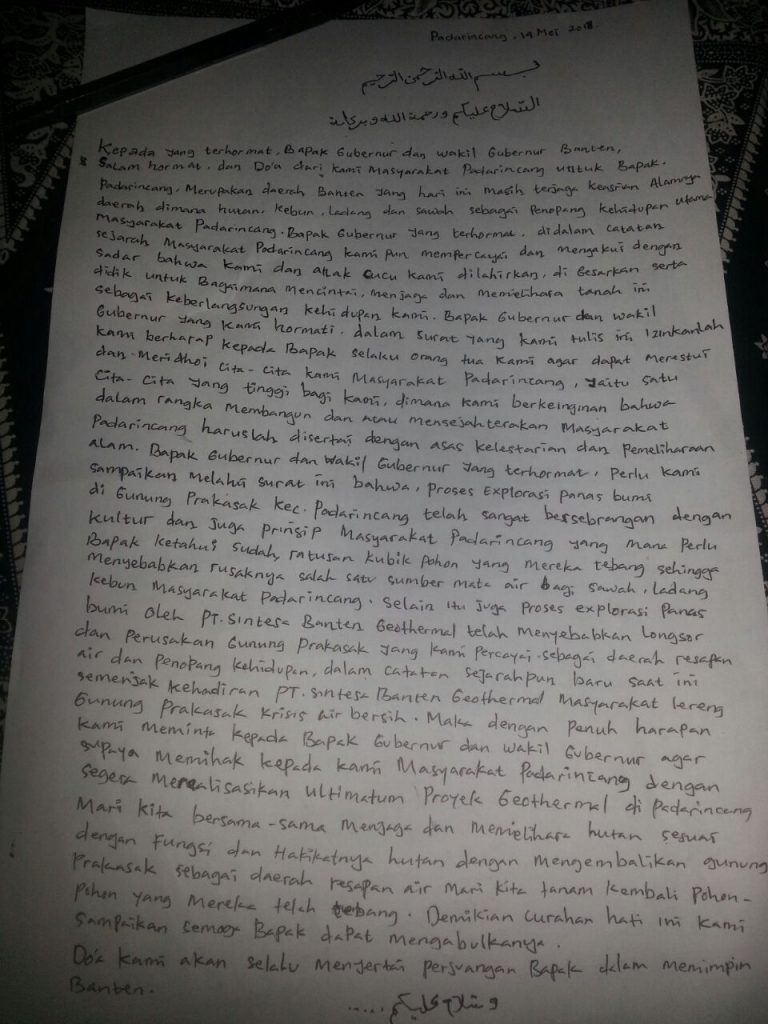 Padarincang, 14 Mei 2018.
بسم الله الرحمن الرحيم
السلام عليكم ورحمة الله وبركاته
Kepada yang terhormat, Bapak Gubernur dan wakil Gubernur Banten,
Salam hormat, dan Do'a dari kami Masyarakat Padarincang untuk Bapak.
Padarincang, Merupakan daerah Banten yang hari ini masih terjaga keasrian Alamnya
daerah dimana hutan, kebun, ladang dan sawah sebagai Penopang kehidupan utama
Masyarakat Padarincang. Bapak Gubernur yang terhormat, didalam catatan
sejarah Masyarakat Padarincang kami pun mempercayai dan mengakui dengan
sadar bahwa kami dan anak cucu kami dilahirkan, di besarkan serta
didik untuk Bagaimana mencintai, menjaga dan memelihara tanah ini
sebagai keberlangsungan kehidupan kami. Bapak Gubernur dan wakil
Gubernur yang kami hormati, dalam surat yang kami tulis ini izinkanlah
kami berharap kepada Bapak selaku orang tua kami agar dapat Merestui
dan Meridhoi Cita-cita kami Masyarakat Padarincang, yaitu satu
Cita-Cita yang tinggi bagi kami, dimana kami berkeinginan bahwa
dalam rangka Membangun dan atau mensejahterakan Masyarakat
Padarincang haruslah disertai dengan asas kelestarian dan Pemeliharaan
alam. Bapak Gubernur dan Wakil Gubernur yang terhormat, Perlu kami
sampaikan Melalui surat ini bahwa, Proses Explorasi panas bumi
di Gunung Prakasak Kec. Padarincang telah sangat bersebrangan dengan
kultur dan juga prinsip Masyarakat Padarincang yang mana Perlu
Bapak ketahui sudah ratusan kubik pohon yang mereka tebang sehingga
menyebabkan rusaknya salah satu sumber mata air bagi sawah, ladang
kebun Masyarakat Padarincang. Selain itu juga Proses explorasi Panas
bumi oleh PT. Sintesa Banten Geothermal telah Menyebabkan Longsor
dan Perusakan Gunung Prakasak yang kami Percayai sebagai daerah resapan
air dan penopang kehidupan, dalam catatan sejarahpun baru saat ini
semenjak kehadiran PT. Sintesa Banten Geothermal Masyarakat lereng
Gunung Prakasak Krisis air bersih. Maka dengan Penuh harapan
kami meminta kepada Bapak Gubernur dan wakil Gubernur agar
supaya Memihak kepada kami Masyarakat Padarincang dengan
segera Merealisasikan Ultimatum Proyek Geothermal di Padarincang
Mari kita bersama-sama Menjaga dan Memelihara hutan sesuai
dengan Fungsi dan Hakikatnya hutan dengan Mengembalikan gunung
Prakasak sebagai daerah resapan air Mari kita tanam kembali Pohon-
Pohon yang Mereka telah tebang. Demikian curahan hati ini kami
sampaikan semoga Bapak dapat mengabulkanya.
Do'a kami akan selalu Menyertai perjuangan Bapak dalam memimpin
Banten.
وسلام عليكم .....